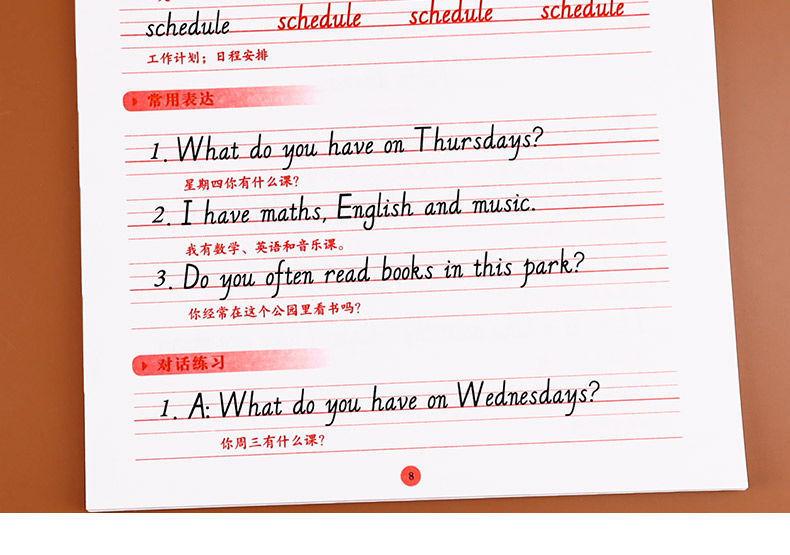 schedule schedule schedule schedule
工作计划；日程安排
常用表达
1. What do you have on Thursdays?
星期四你有什么课？
2. I have maths, English and music.
我有数学、英语和音乐课。
3. Do you often read books in this park?
你经常在这个公园里看书吗？
对话练习
1. A: What do you have on Wednesdays?
你周三有什么课？
8